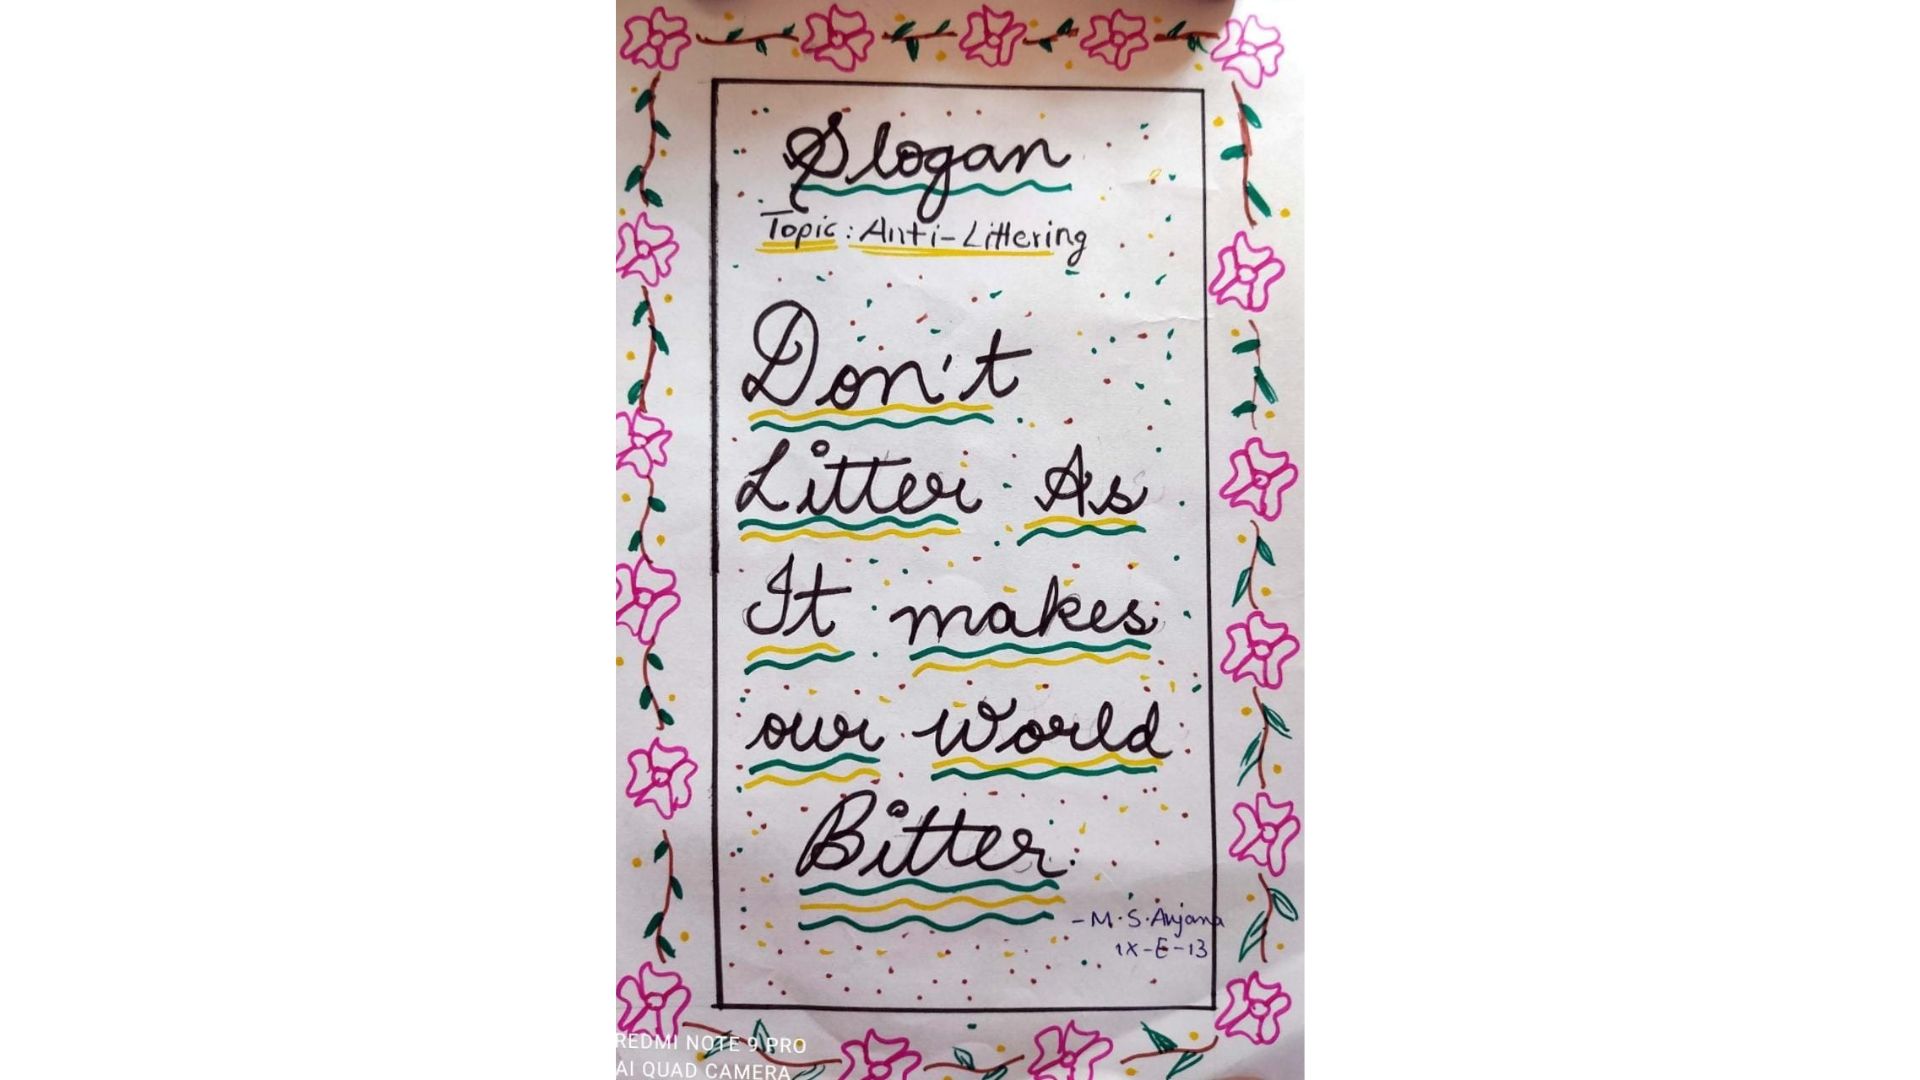 Slogan
Topic: Anti-Littering
Don't
Litter As
It makes
our World
Bitter
- M.S.Anjana
IX-E-13
REDMI NOTE 9 PRO
AI QUAD CAMERA